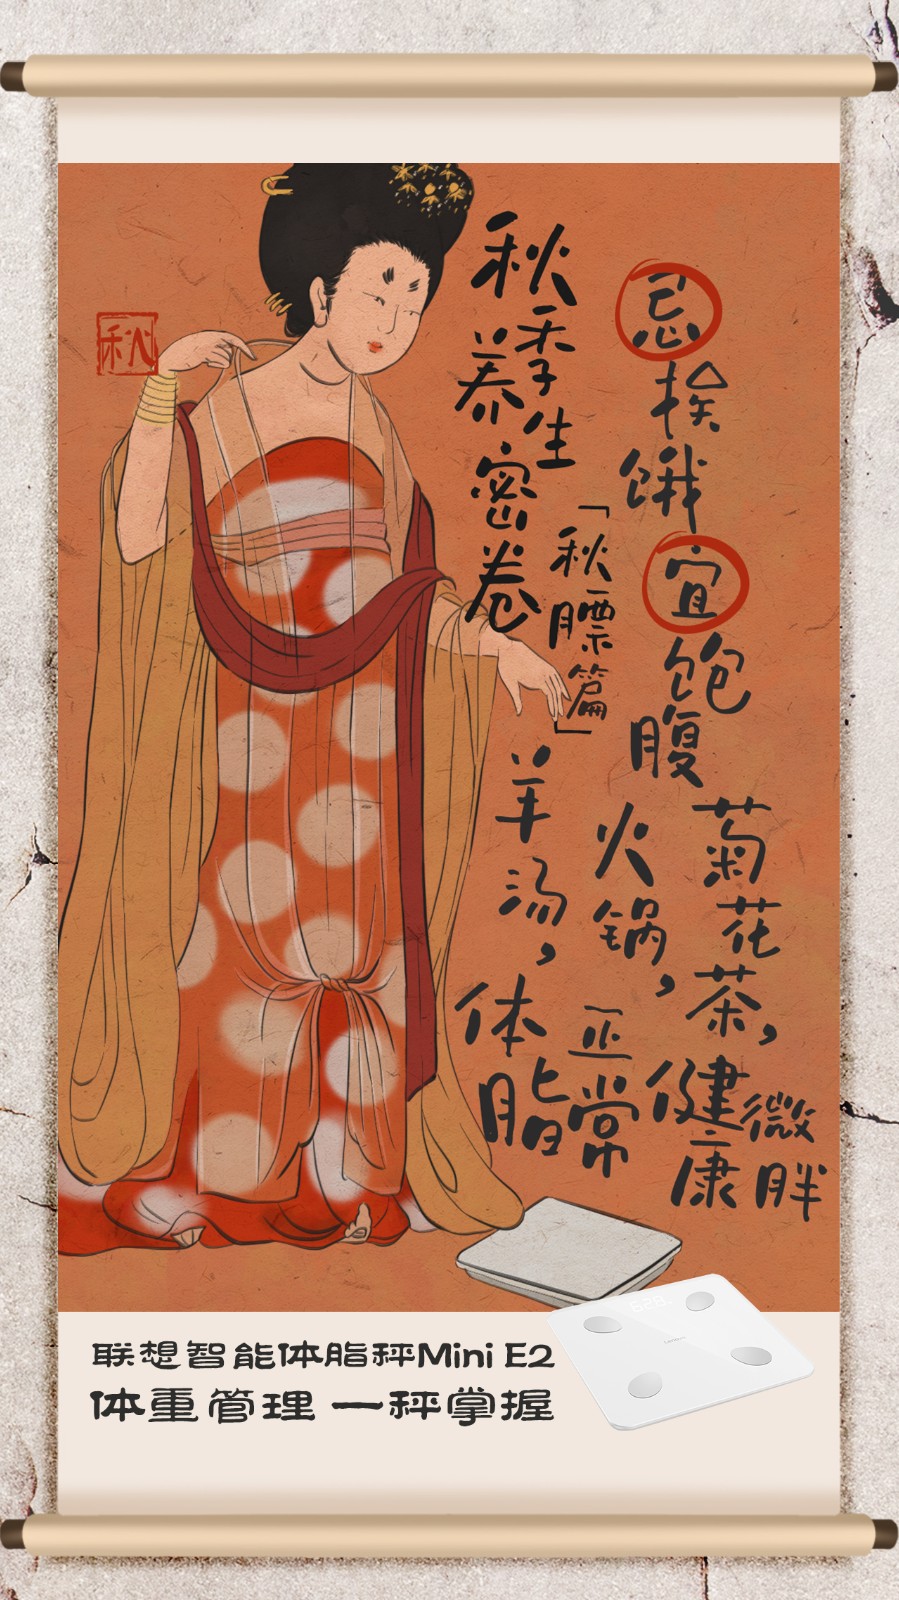 秋
秋季养生密卷
「秋膘篇」
忌挨饿
宜饱腹
羊汤，体脂
火锅，正常
菊花茶，健康
微胖
联想智能体脂秤Mini E2
体重管理 一秤掌握